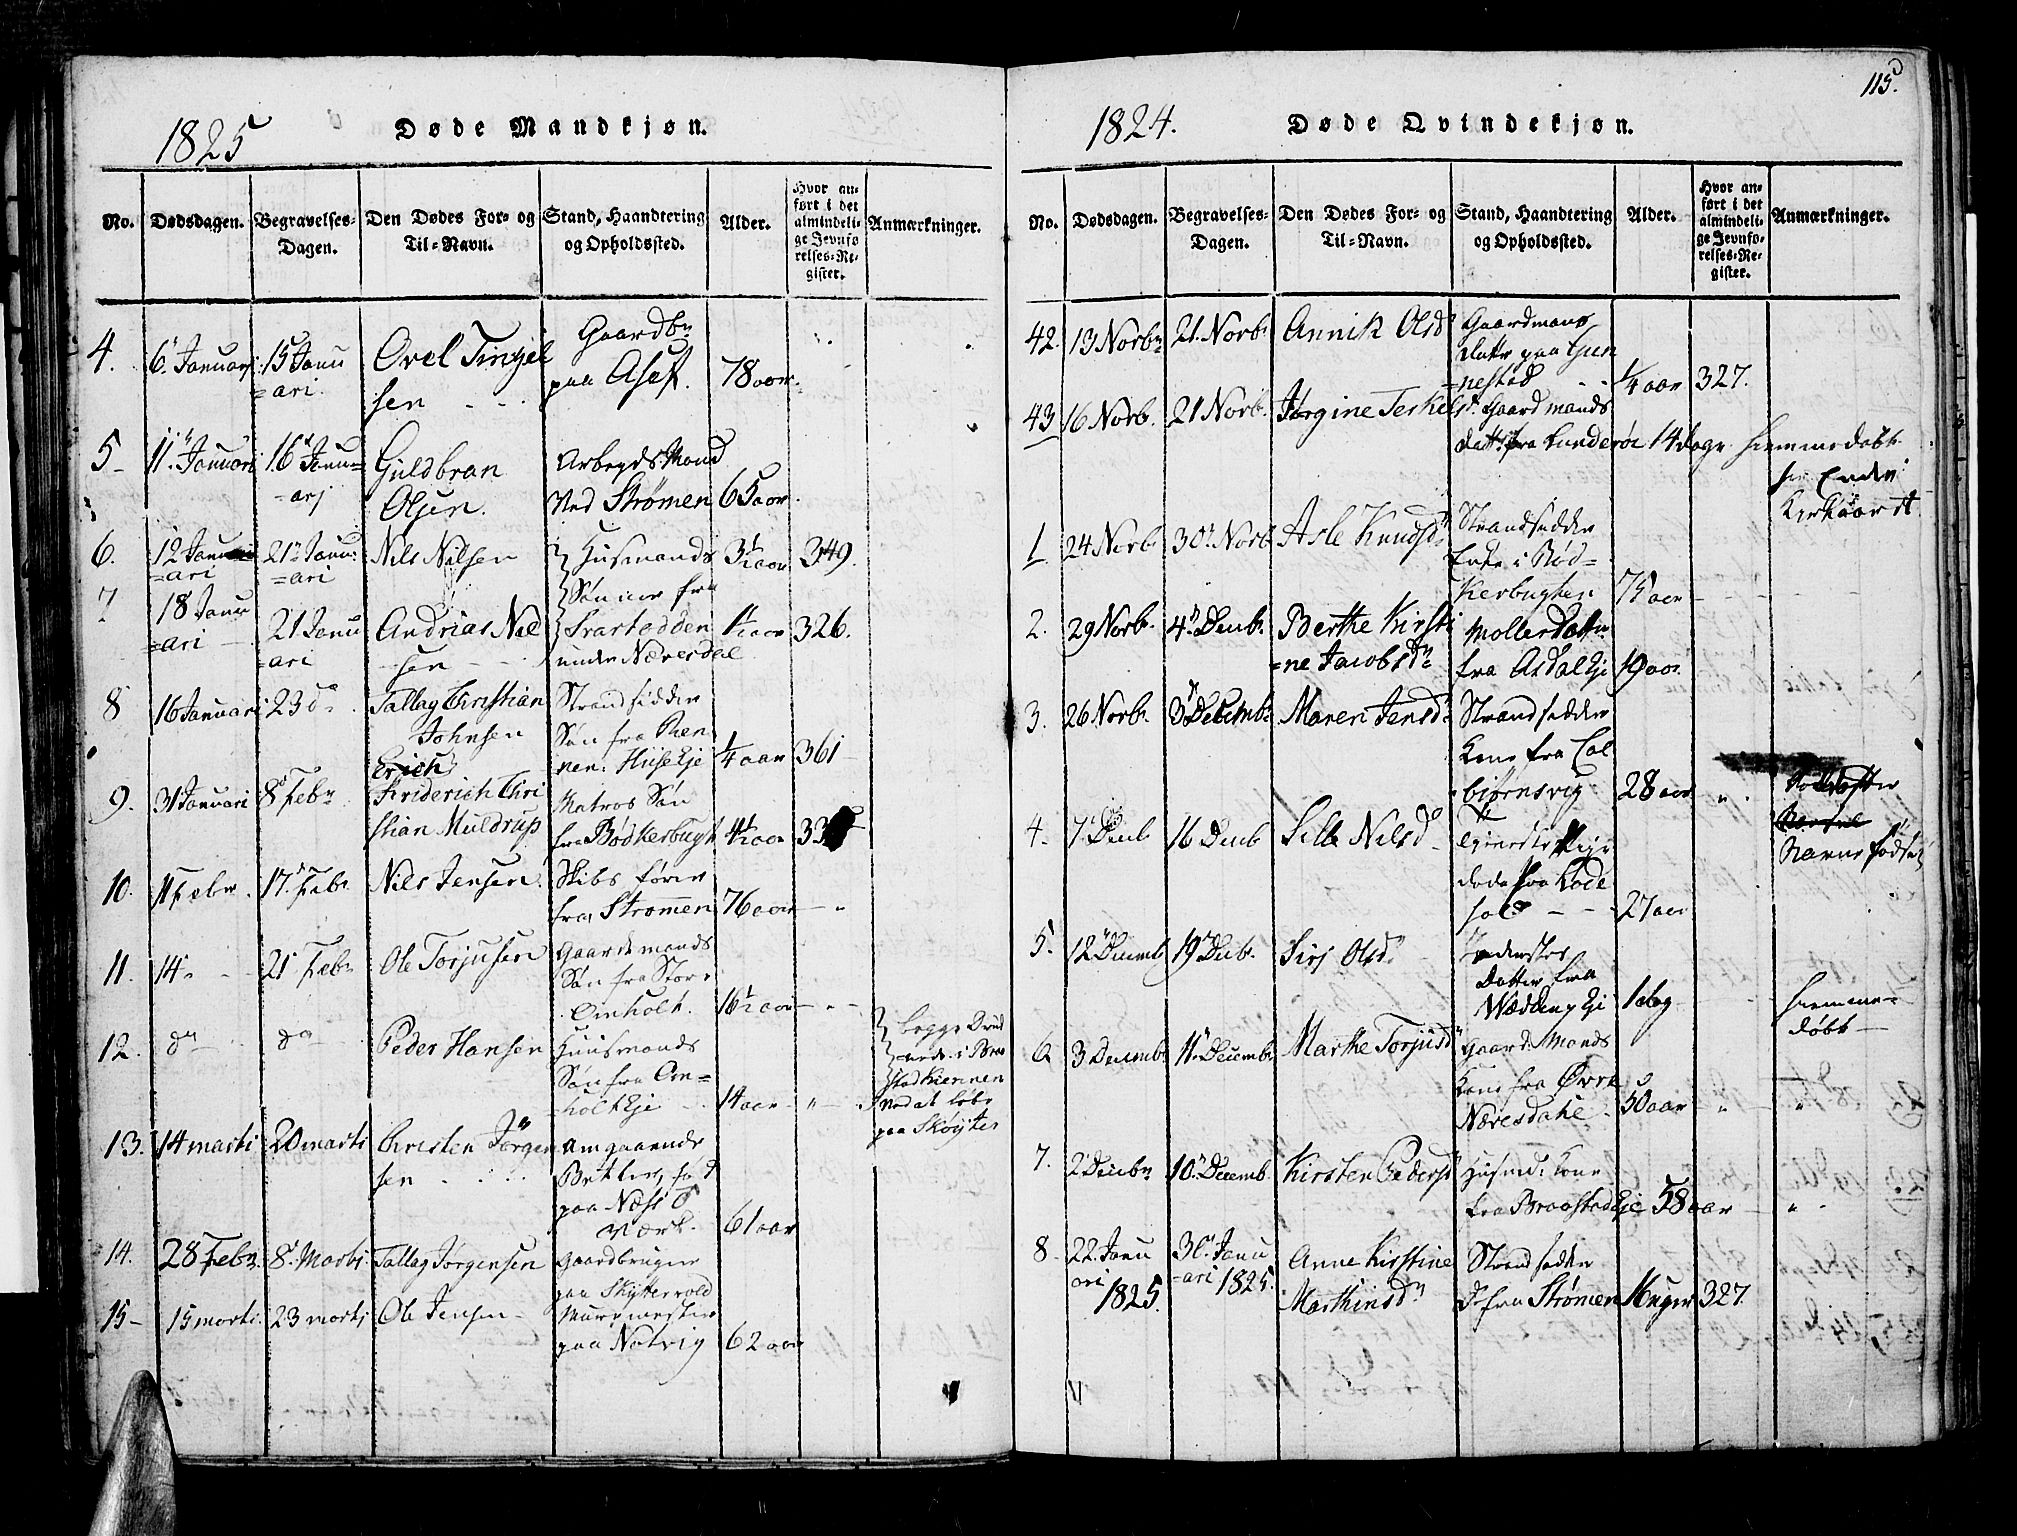 1825 Døde Mandkjøn.
No. Dødsdagen. Begravelses-Dagen. Den Dødes For- og Til-Navn. Stand, Haandtering og Opholdssted. Alder. Hvor anført i det almindelige Jevnførelses-Register. Anmærkninger.
4. 6 Januari 15 Januari. Ovel Tinjelsen Gaardbr paa Asef. 78 aar.
5 11 Januari 16 Januarj Guldbran Olsen. Arbeyds Mand Ved Strømen 65 aar.
6. 12 Januari 21 Januari Nils Nilsen Husmands 3½ aar 349.
7 18 Januari 21 Januari Andrias Nilsen Sønner fra Svartodden under Næresdal 1½ aar 326.
8 16 Januari 23 do Tallag Christian Johnsen Strandsidder Søn fra Huseeje ¼ aar 361
9. 31 Januari 8 Febr Erich Friderich Christian Muldrup Matros Søn fra Bødkerbugt 4½ aar
10. 11 Febr. 17. Febr. Nils Jensen. Skibsfører fra Strømen 76 aar
11. 14 21 Febr Ole Torjusen Gaardmands Søn fra Omholt. 16½ aar
12. do do Peder Hansen Huusmands Søn fra Omholt Eje 14 aar
begge Druknede i kiennen ved at løbe paa Skøyter
13. 14 marti 20 marti Christen Jørgensen omgaaende Betler, fød paa Næss Værk. 61 aar
14. 28 Febr. 8 Marti. Tallag Jørgensen Gaardbruger paa Skyttervold
15 15 marti. 23 marti Ole Jensen Muurmester paa Natvig 62 aar
115.
1824. Døde Qvindekjøn.
No. Dødsdagen. Begravelses-Dagen. Den Dødes For- og Til-Navn. Stand, Haandtering og Opholdssted. Alder. Hvor anført i det almindelige Jevnførelses-Register. Anmærkninger.
42. 13 Novbr 21. Novbr Annik Olsd Gaardmans datter paa Gunnestad ¼ aar 327.
43 16 Novbr. 21 Novbr. Jørgine Terkelsd. Gaardmands datter fra Lunderøe 14 dage hiemmedøbt
1 24 Novbr 30 Novbr Asle Knudsd Strandsidder Enke i Bødkerbugten 75 aar
2. 29 Novbr. 4 Decbr. Berthe Kirstine Jacobsd Møller datter fra Asdal Eje 19 aar
3. 26 Novbr. 3 Decembr Maren Jensd Strandsidder Kone fra Colbiørnsvig 28 aar
4. 7 Decbr 16 Decbr Sille Nilsd Tjeneste Pige døde fra 27 aar
5. 12 Decemb 19 Decbr. Siri Olsd Datter fra Wædding Eje 1 dag hiemmedøbt
6 3 Decembr 11 Decembr Marthe Torjusd Gaard Mands Kone fra Øvre Næresdahl 50 aar
7. 2 Decbr 10 Decemb. Kirsten Pedersd Husmd: Kone fra Braastad Eje 58 aar
8 22. Januari 1825. 30 Januari 1825. Anne Kirstine Marthinsd Strandsidder D. fra Strømen 16 uger 327.